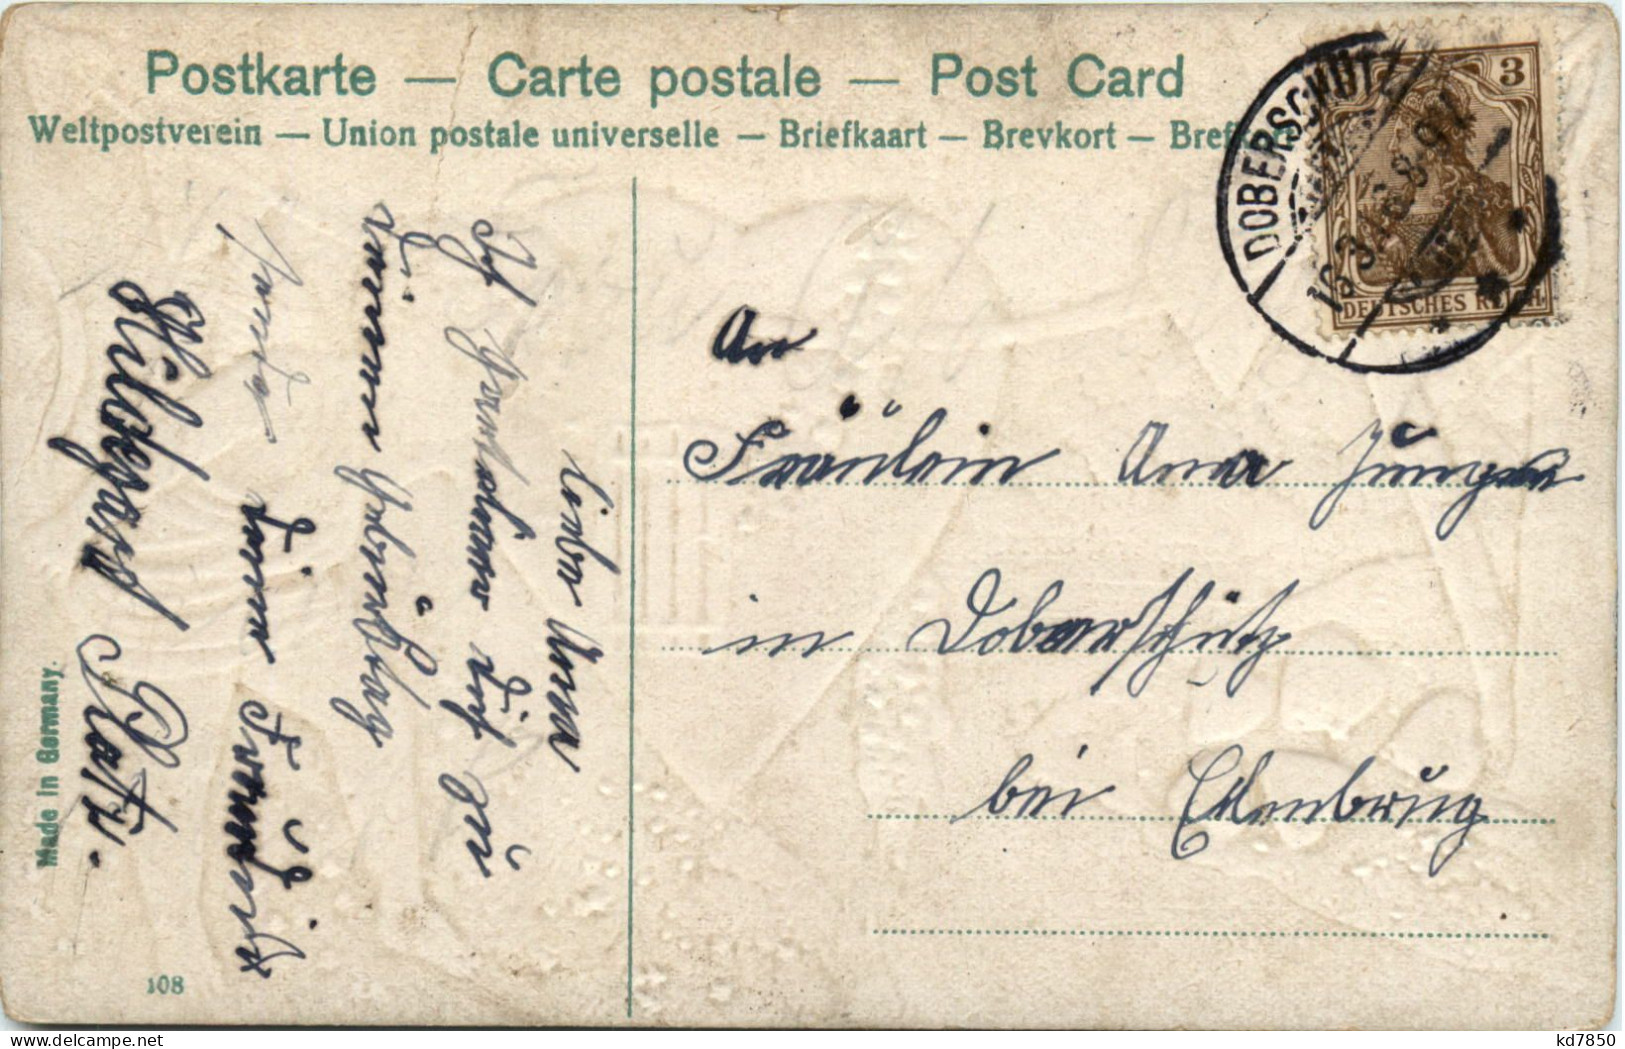 Postkarte — Carte postale — Post Card
Weltpostverein — Union postale universelle — Briefkaart — Brevkort — Brefkort
3
DEUTSCHES REICH
DOBERSCHÜTZ
An
Fräulein Anna Junge
in Doberschütz
bei Eilenburg
Liebe Anna
Ich gratuliere dich zu
deinem Geburtstag
deine Freundin
Hildegard
Made in Germany.
108
kd7850